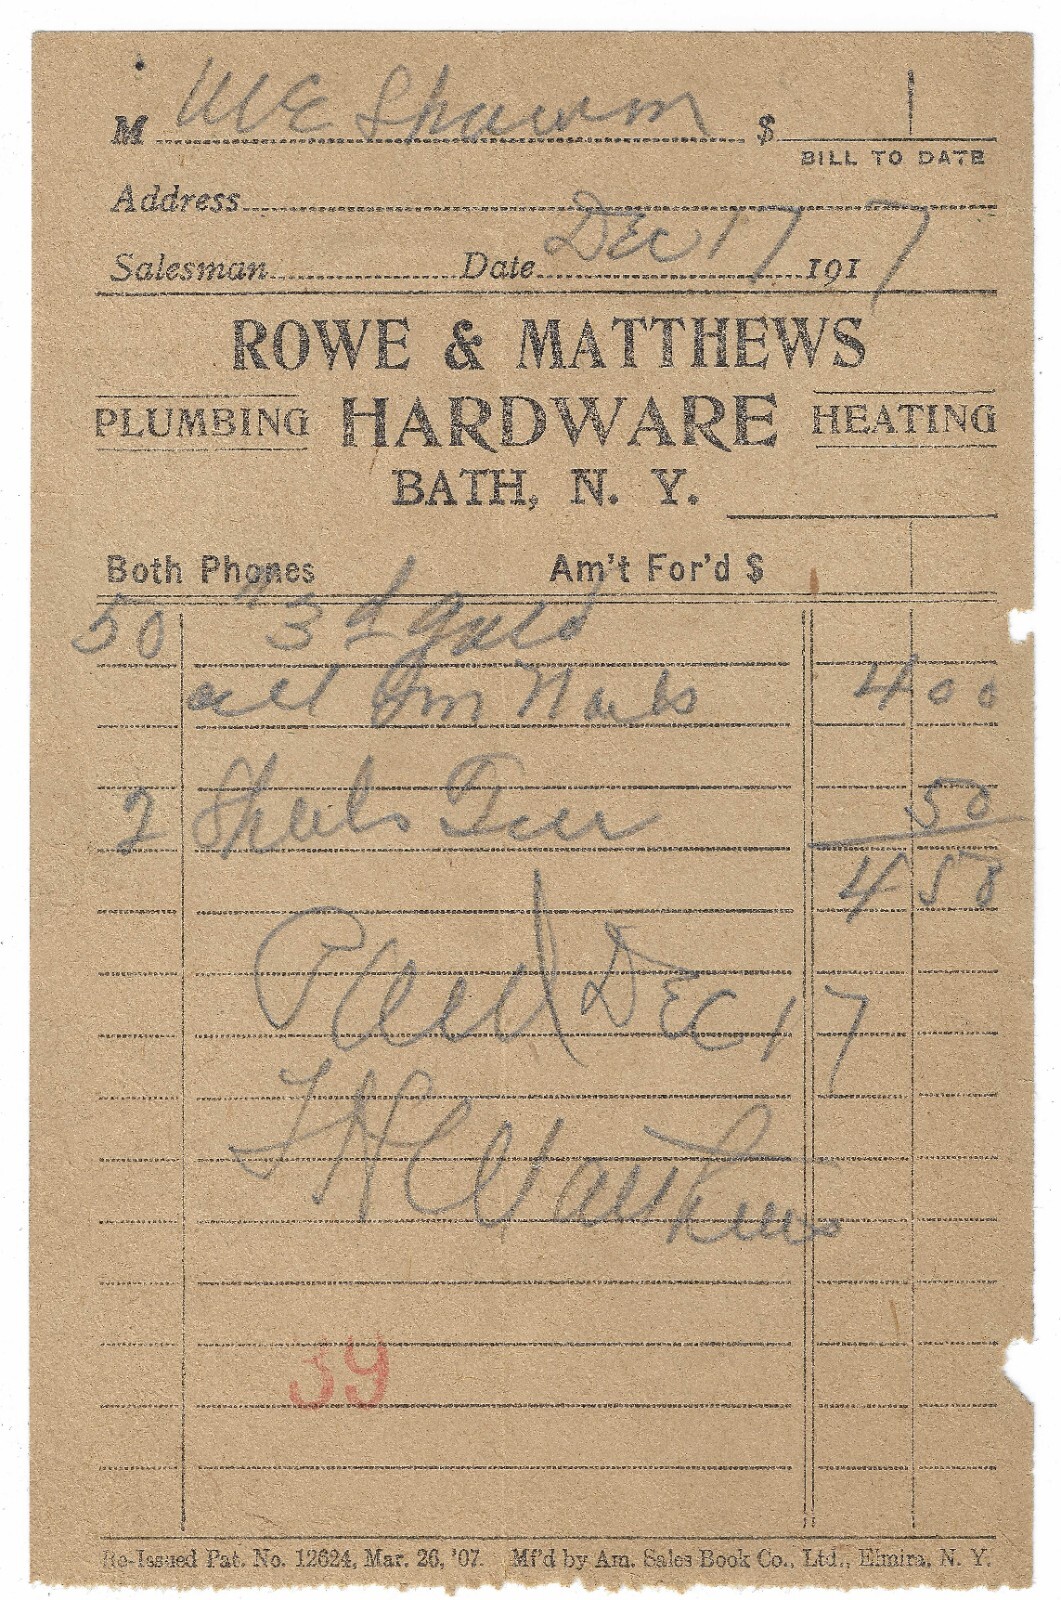 M
$
BILL TO DATE
Address
Salesman Date Dec 17 1917
ROWE & MATTHEWS
PLUMBING HARDWARE HEATING
BATH, N. Y.
Both Phones Am't For'd $
50 " 3 d
Nails 4 00
2 Sheets 50
4 50
Paid Dec 17
Matthews
39
Re-Issued Pat. No. 12624, Mar. 26, '07. Mf'd by Am. Sales Book Co., Ltd., Elmira, N. Y.